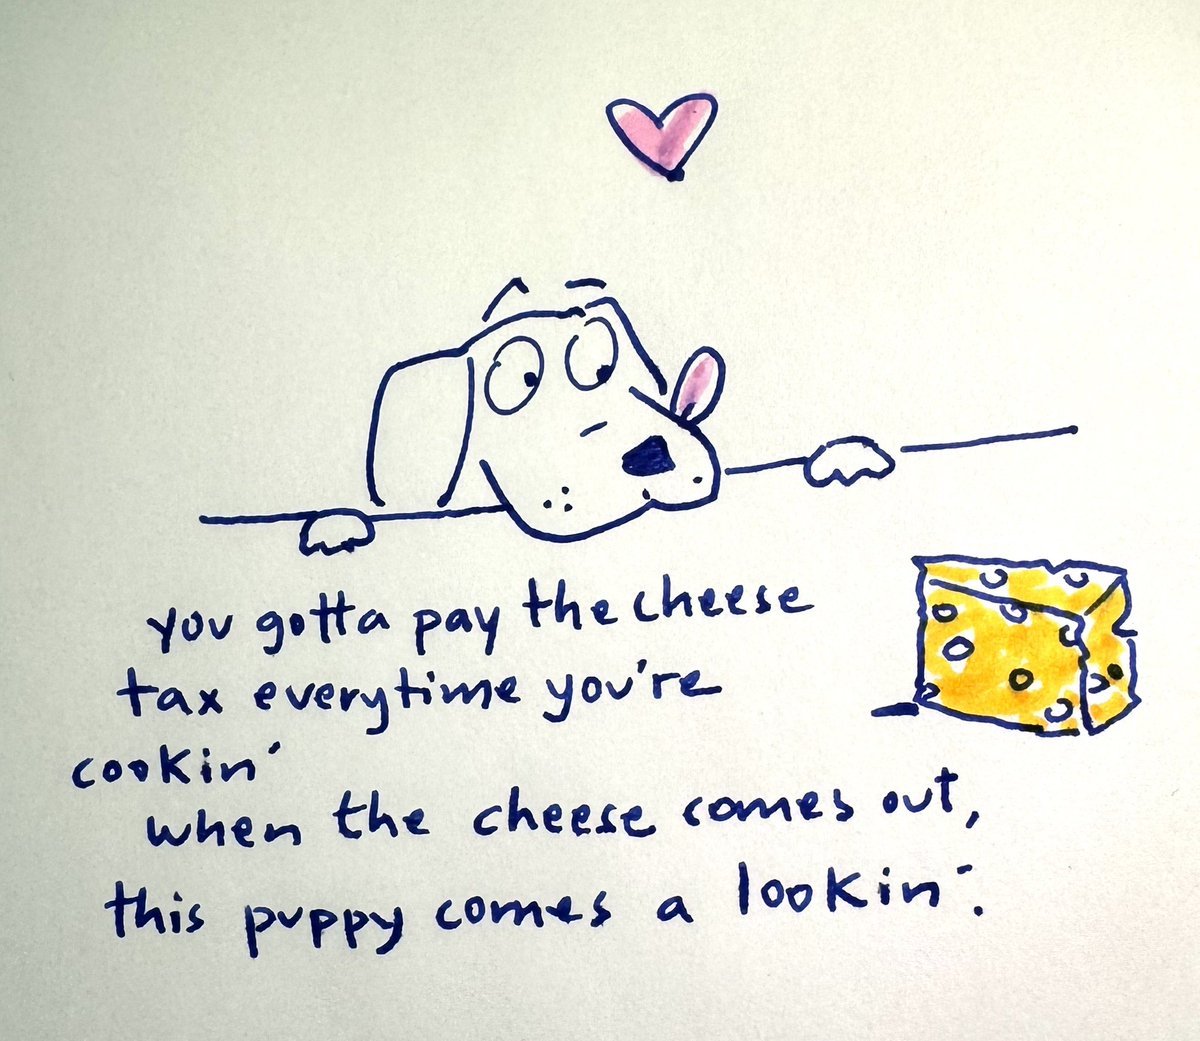 you gotta pay the cheese
tax everytime you're
cookin'
when the cheese comes out,
this puppy comes a lookin'.